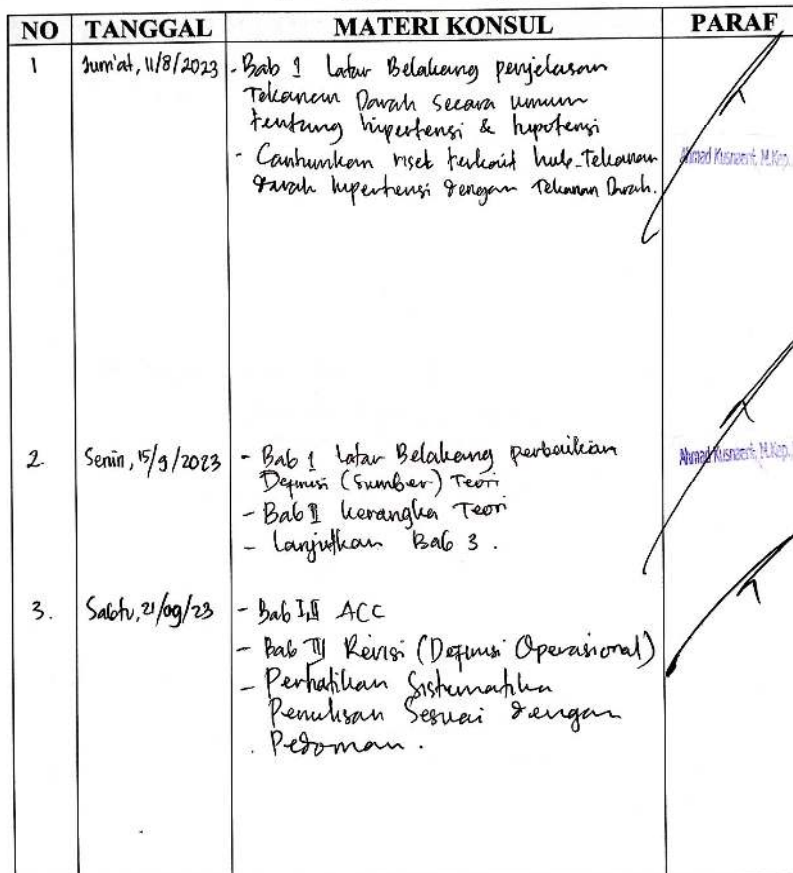 NO TANGGAL MATERI KONSUL PARAF
1 Jum'at, 11/8/2023 - Bab 1 Latar Belakang penjelasan
Tekanan Darah Secara umum
tentang hipertensi & hipotensi
- Cantumkan riset terkait hub. Tekanan
darah hipertensi dengan Tekanan Darah.
Ahmad Kusnaeni, M.Kep.,
2. Senin, 15/9/2023 - Bab 1 Latar Belakang perbaikan
Definisi (Sumber) Teori
- Bab II Kerangka Teori
- Lanjutkan Bab 3.
Ahmad Kusnaeni, M.Kep.,
3. Sabtu, 21/09/23 - Bab I,II ACC
- Bab III Revisi (Definisi Operasional)
- Perhatikan Sistematika
Penulisan Sesuai dengan
Pedoman.